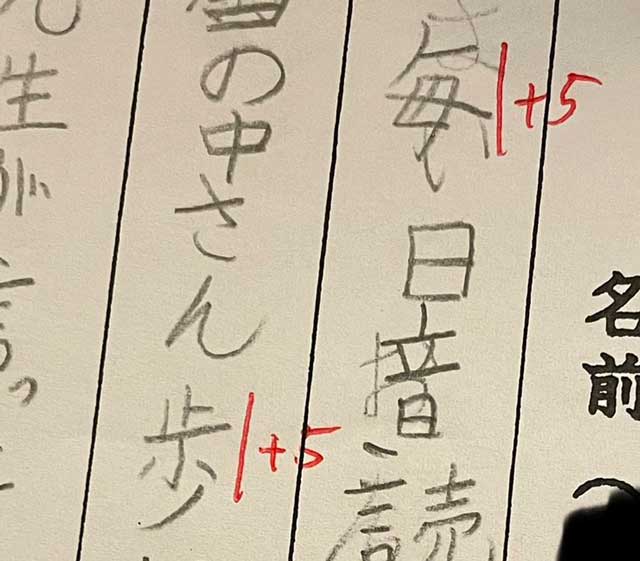 名前(
毎日音読
+5
雪の中さん歩
+5
生が言っ